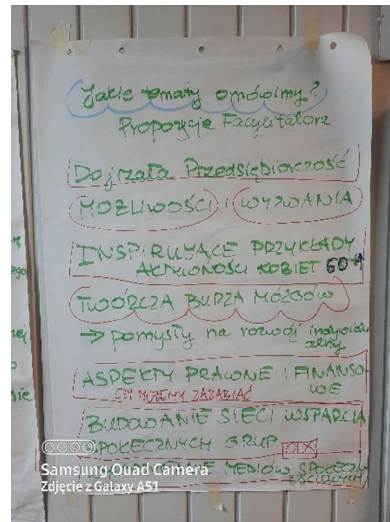 Jakie tematy omówimy?
Propozycje Facylitatora
Dojrzała Przedsiębiorczość
MOŻLIWOŚCI i WYZWANIA
INSPIRUJĄCE PRZYKŁADY
AKTYWNOŚCI KOBIET 60+
TWÓRCZA BURZA MÓZGÓW
→ pomysły na rozwój
ASPEKTY PRAWNE i FINANSO-
WE
MOŻEMY ZARABIAĆ
BUDOWANIE SIECI WSPARCIA
SPOŁECZNYCH GRUP
OLX
MEDIÓW SPOŁECZ-
OŚCIOWYCH
Samsung Quad Camera
Zdjęcie z Galaxy A51